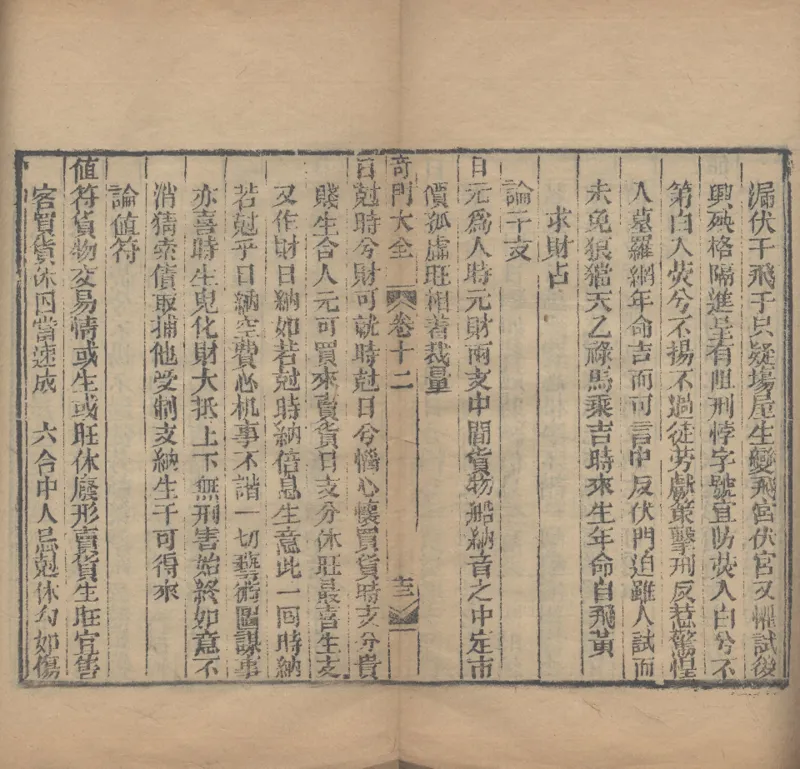 漏伏干飛于只疑場屋生變飛宮伏宮又懼試後
興殃格隔進呈有阻刑悖字號宜防熒入白兮不
第白入熒兮不揚不過徒勞獻策擊刑反惹驚惶
入墓羅網年命吉而可言中反伏門迫雖入試而
未免狼猖天乙祿馬乘吉時來生年命自飛黃
求財占
論干支
日元為人時元財兩支中間貨物船納音之中定市
價孤虛旺相著裁量
奇門大全 卷十二 十三
日尅時兮財可就時尅日兮惱心懷買貨時支分貴
賤生合人元可買來賣貨日支分休旺最喜生支
又作財日納如若尅時納倍息生意此一回時納
若尅乎日納空費心机事不諧一切藝術圖謀事
亦喜時生鬼化財大抵上下無刑害始終如意不
消猜索債取捕他受制支納生干可得來
論值符
值符貨物交易情或生或旺休廢形賣貨生旺宜售
客買貨休囚當速成 六合中人忌尅休勾如傷